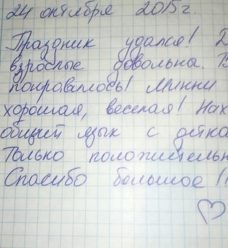 24 октября 2015г.
Праздник удался! Д
взрослые довольны. В
понравилось! Минни
хорошая, веселая! Нах
общий язык с детка
Только положительн
Спасибо большое!!